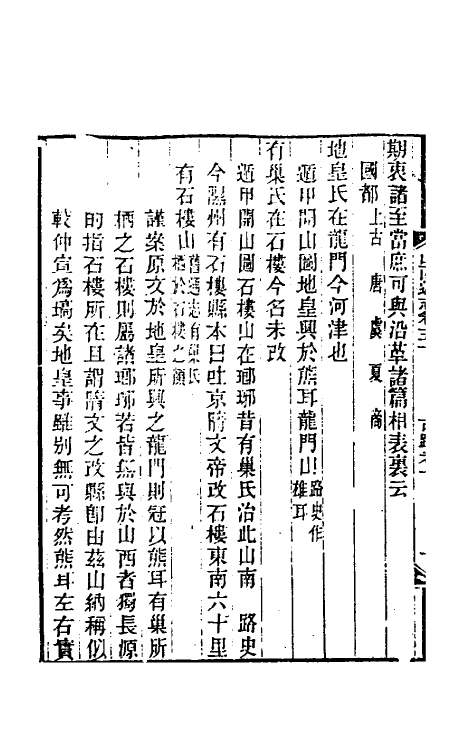 期衷諸至當庶可與沿革諸篇相表裏云
國都上古　唐　虞　夏　商
地皇氏在龍門今河津也
遁甲開山圖地皇興於熊耳龍門山路史作雄耳
有巢氏在石樓今名未改
遁甲開山圖石樓山在瑯琊昔有巢氏治此山南　路史
今隰州有石樓縣本曰吐京隋文帝改石樓東南六十里
有石樓山舊通志有巢氏橧於石樓之顛
謹案原文於地皇所興之龍門則冠以熊耳有巢所
栖之石樓則屬諸瑯琊若皆無與於山西者獨長源
的指石樓所在且謂隋文之改縣卽由茲山納稱似
較仲宣爲塙矣地皇事雖别無可考然熊耳左右實